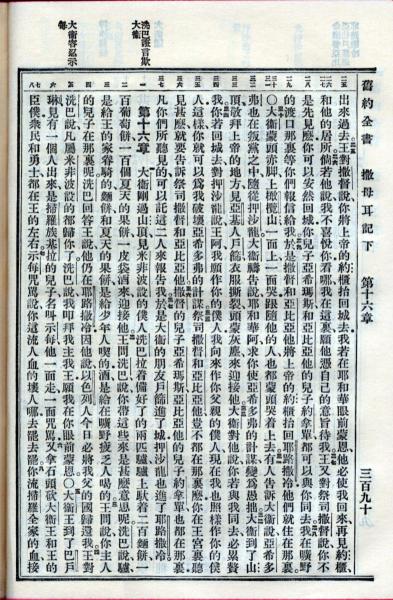 舊約全書 撒母耳記下 第十六章 三百九十
出來過去○王對撒督說你將上帝的約櫃抬回城去我若在耶和華眼前蒙恩他必使我回來再見約櫃
和他的居所倘若他說我不喜悅你看哪我在這裏願他憑自己的意旨待我王又對祭司撒督說你不
是先見麼你可以安然回城你兒子亞希瑪斯和亞比亞他的兒子約拿單都可以與你同去我在曠野
的渡口那裏等你們報信給我於是撒督和亞比亞他將上帝的約櫃抬回耶路撒冷他們就住在那裏
○大衞蒙頭赤腳上橄欖山一面上一面哭跟隨他的人也都蒙頭哭着上去有人告訴大衞說亞希多
弗也在叛黨之中隨從押沙龍大衞禱告說耶和華阿求你使亞希多弗的計謀變爲愚拙大衞到了山
頂敬拜上帝的地方見亞基人戶篩衣服撕裂頭蒙灰塵來迎接他大衞對他說你若與我同去必累贅
我你若回城去對押沙龍說王阿我願作你的僕人我向來作你父親的僕人現在我也照樣作你的僕
人這樣你就可以爲我破壞亞希多弗的計謀祭司撒督和亞比亞他豈不都在那裏麼你在王宮裏聽
見甚麼就要告訴祭司撒督和亞比亞他撒督的兒子亞希瑪斯亞比亞他的兒子約拿單也都在那裏
凡你們所聽見的可以託這二人來報告我於是大衞的朋友戶篩進了城押沙龍也進了耶路撒冷
第十六章 大衞剛過山頂見米非波設的僕人洗巴拉着備好了的兩匹驢驢上馱着二百麵餅一
百葡萄餅一百個夏天的果餅一皮袋酒來迎接他王問洗巴說你帶這些來是甚麼意思呢洗巴說驢
是給王的家眷騎的麵餅和夏天的果餅是給少年人喫的酒是給在曠野疲乏人喝的王問說你主人
的兒子在那裏呢洗巴回答王說他仍在耶路撒冷因他說以色列人今日必將我父的國歸還我王對
洗巴說凡屬米非波設的都歸你了洗巴說我叩拜我主我王願我在你眼前蒙恩○大衞王到了巴戶
琳見有一個人出來是掃羅族基拉的兒子名叫示每他一面走一面咒罵又拿石頭砍大衞王和王的
臣僕衆民和勇士都在王的左右示每咒罵說你這流人血的壞人哪去罷去罷你流掃羅全家的血接
洗巴謊言欺
大衞
大衞容忍示
每